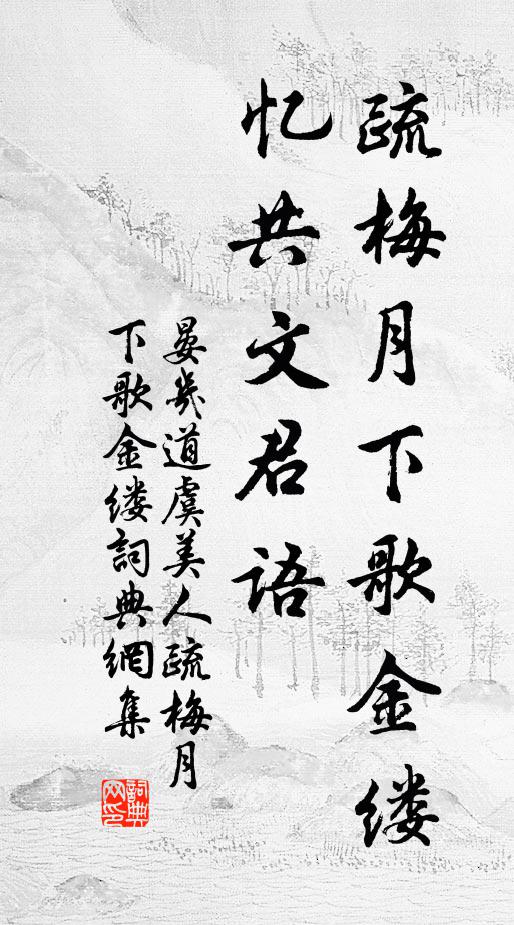 疏梅月下歌金缕
忆共文君语
晏幾道虞美人疏梅月
下歌金缕詞典網集
詞典
网印